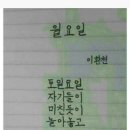 월요일
이환천
토일요일
자기들이
미친듯이
놀아놓고